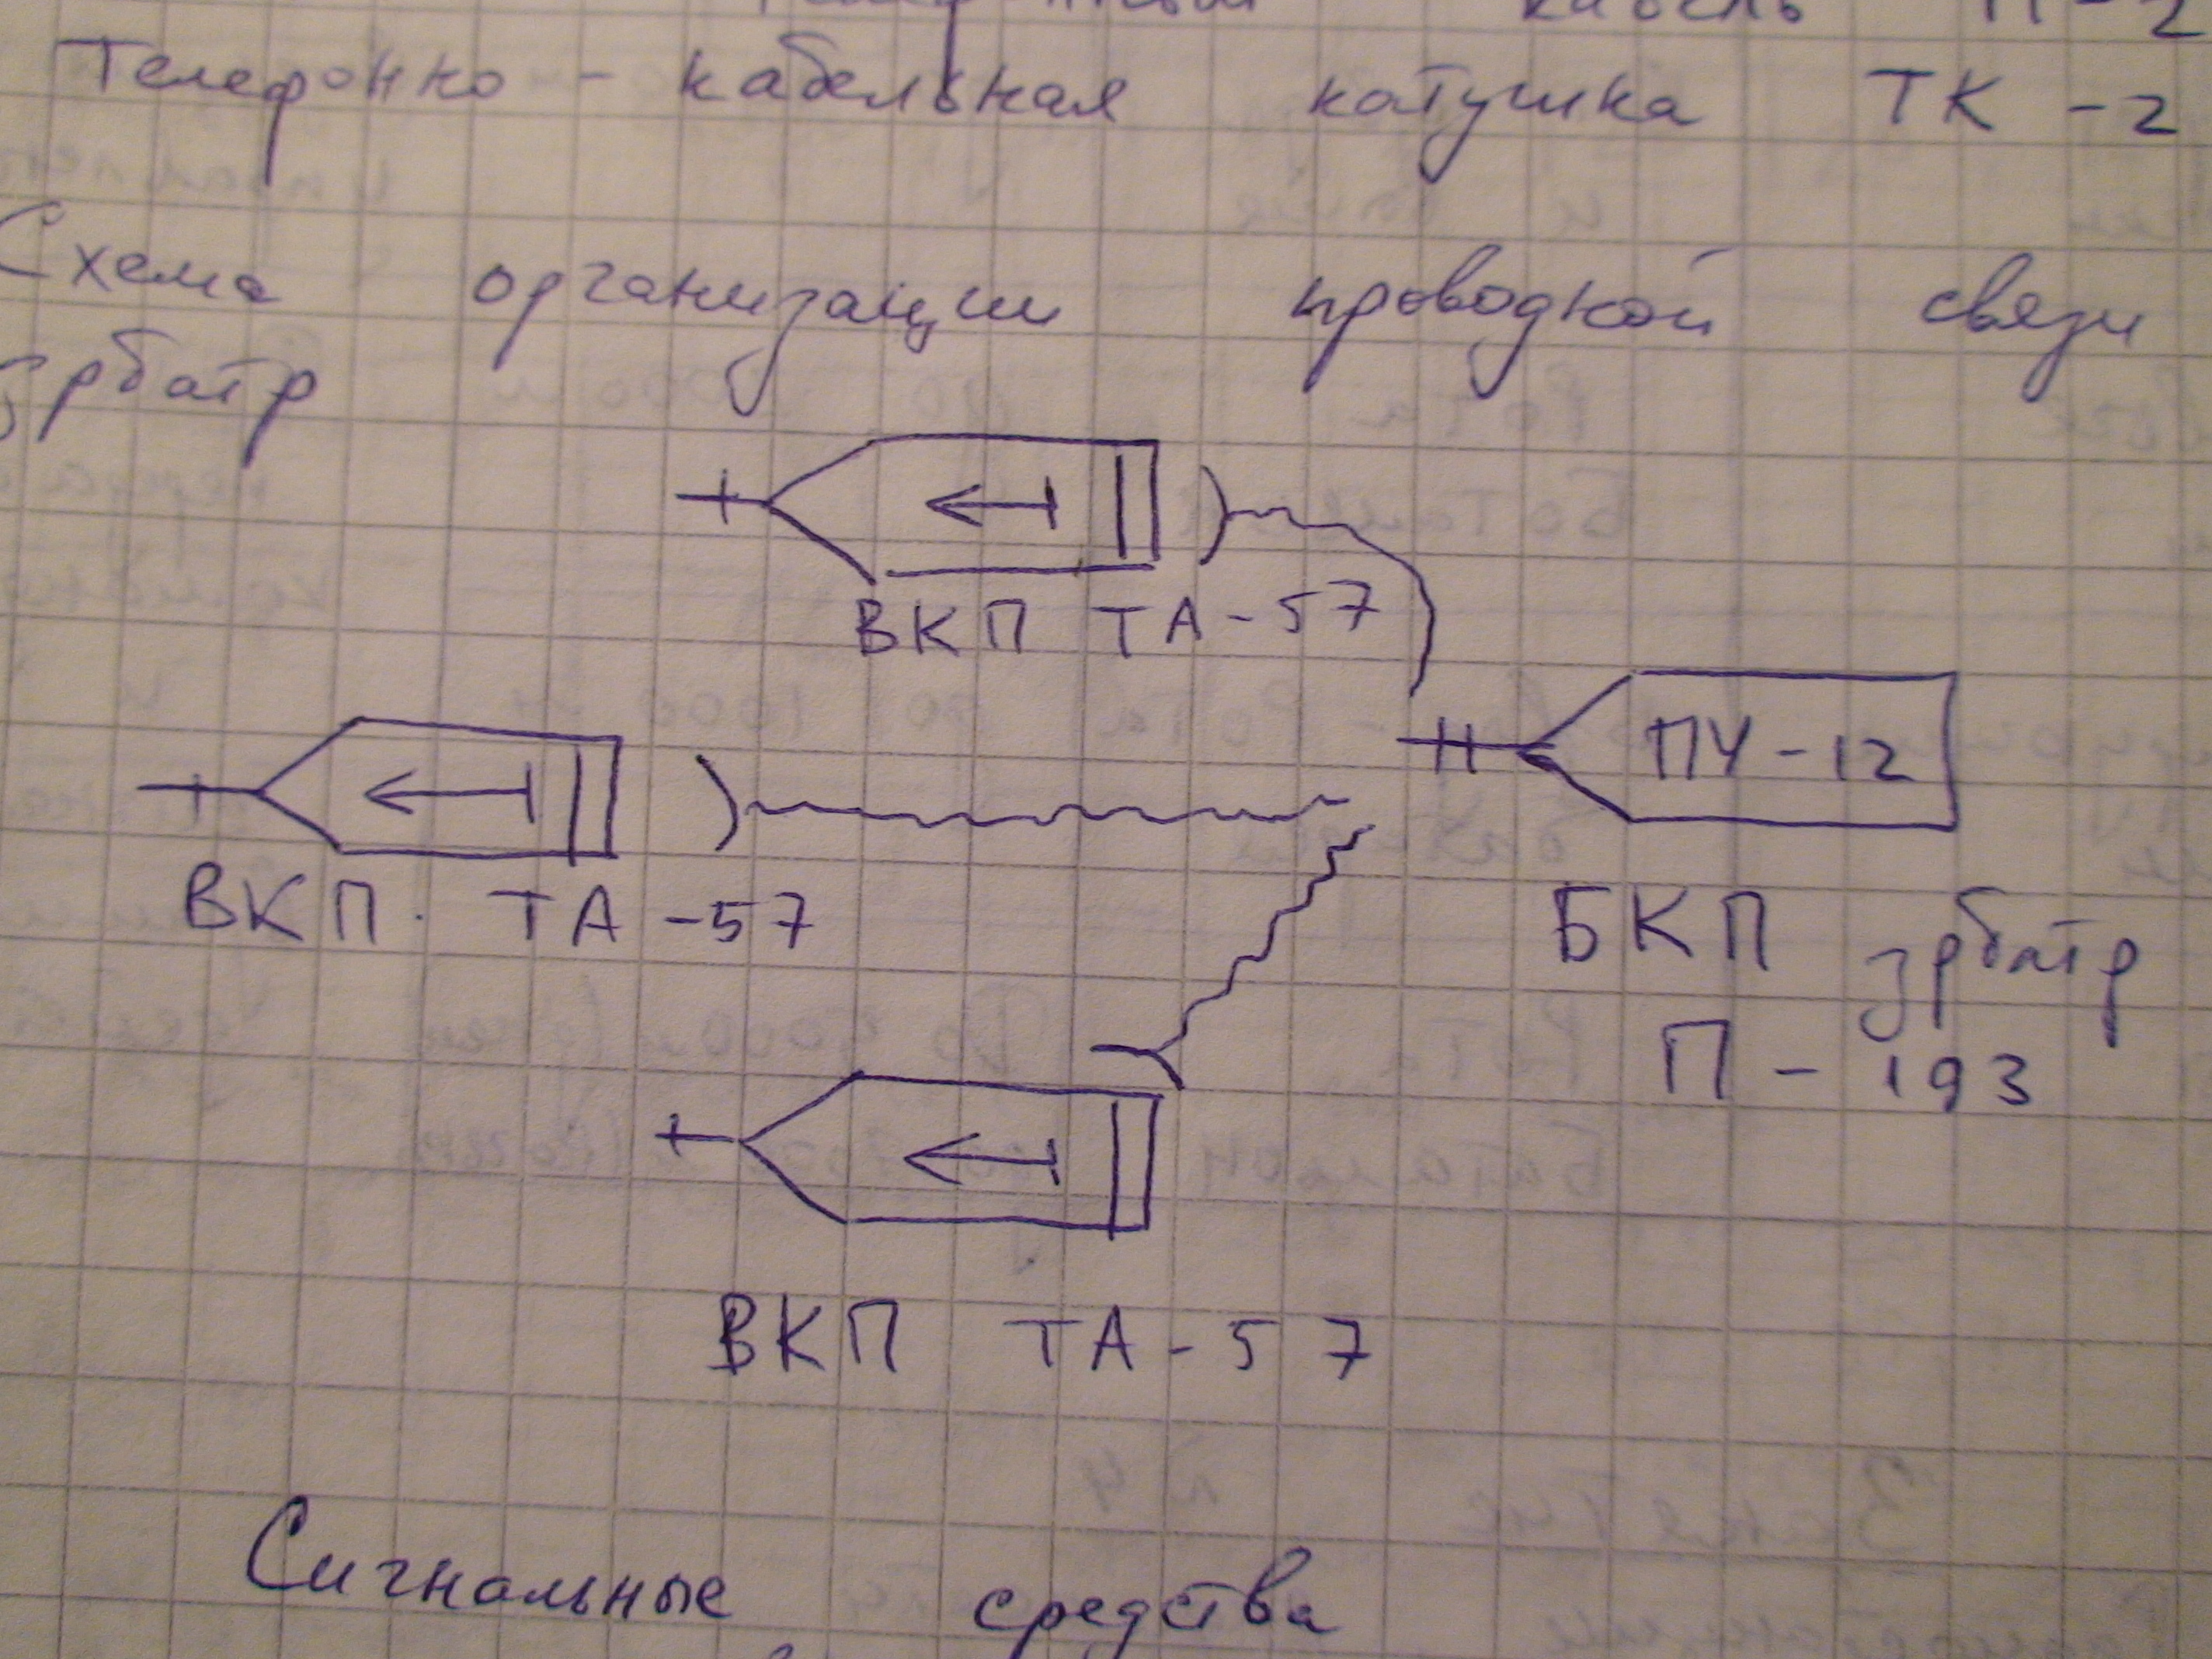 кабель П-2
Телефонно - кабельная катушка ТК - 2
Схема организации проводной связи
зрбатр
ВКП ТА - 57
ПУ - 12
ВКП. ТА - 57
БКП зрбатр
П - 193
ВКП ТА - 57
Сигнальные средства